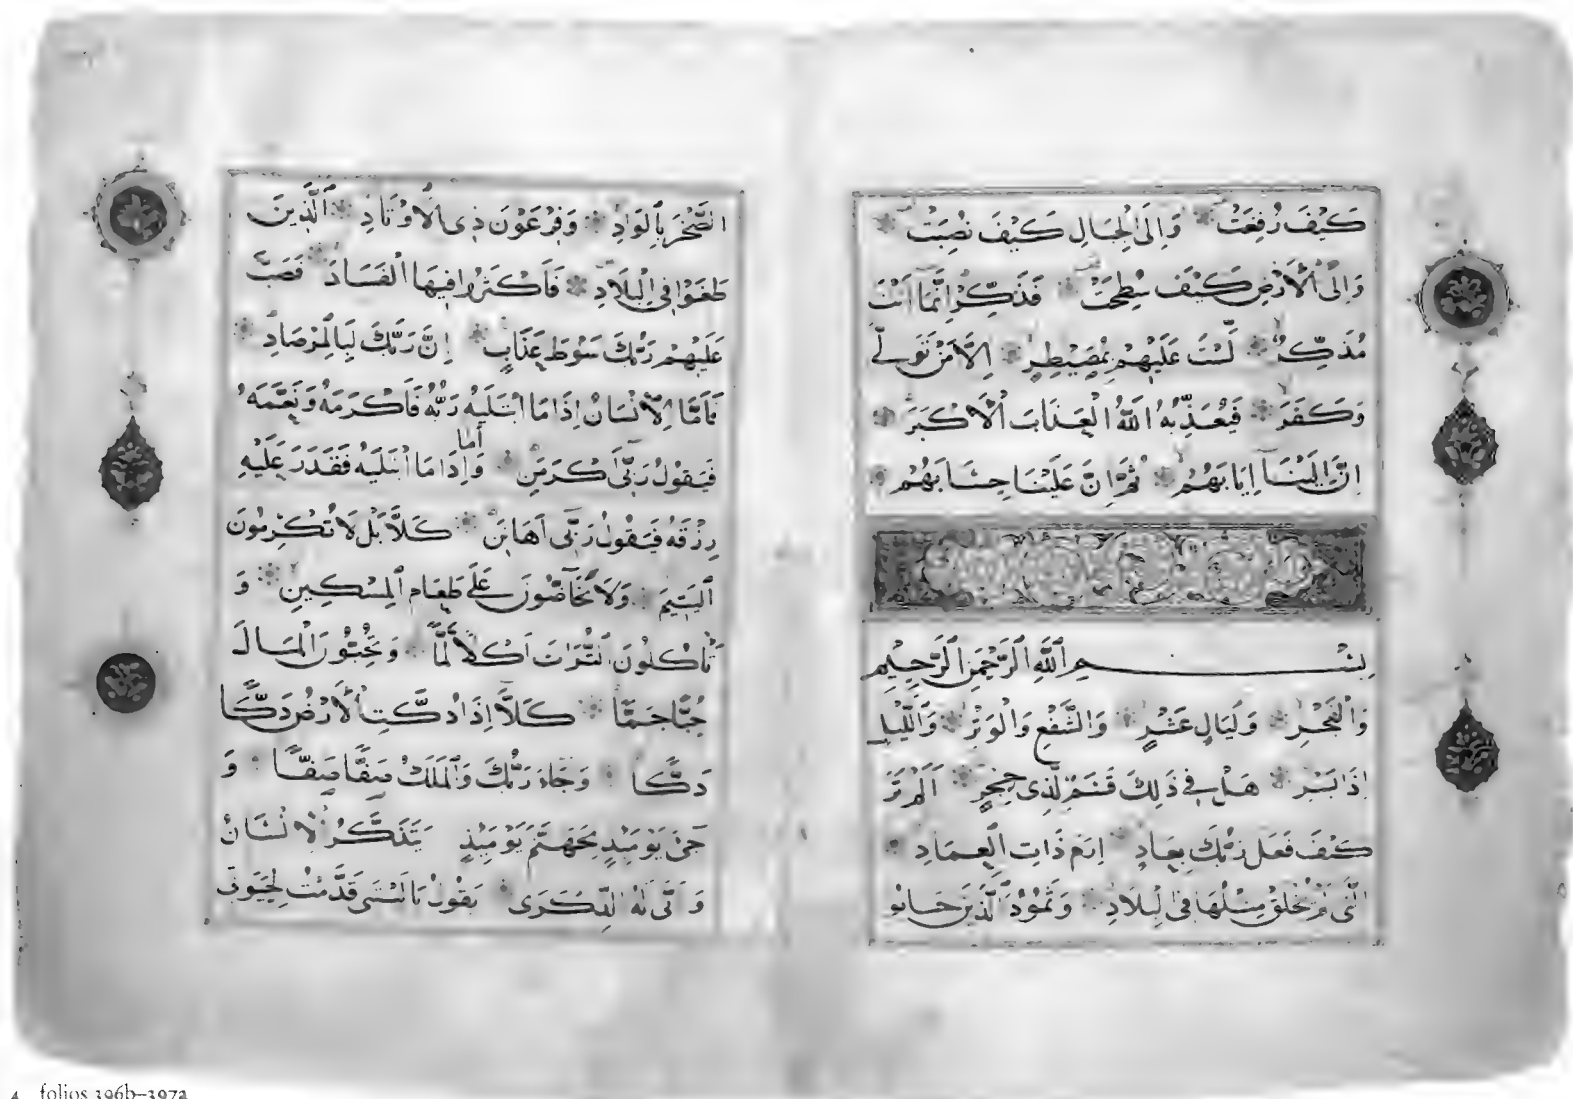 كَيْفَ رُفِعَتْ وَاِلَى الْجِبَالِ كَيْفَ نُصِبَتْ
وَاِلَى الْاَرْضِ كَيْفَ سُطِحَتْ فَذَكِّرْ اِنَّمَا اَنْتَ
مُذَكِّرٌ لَسْتَ عَلَيْهِمْ بِمُصَيْطِرٍ اِلَّا مَنْ تَوَلّٰى
وَكَفَرَ فَيُعَذِّبُهُ اللّٰهُ الْعَذَابَ الْاَكْبَرَ
اِنَّ اِلَيْنَا اِيَابَهُمْ ثُمَّ اِنَّ عَلَيْنَا حِسَابَهُمْ
بِسْمِ اللّٰهِ الرَّحْمٰنِ الرَّحِيمِ
وَالْفَجْرِ وَلَيَالٍ عَشْرٍ وَالشَّفْعِ وَالْوَتْرِ وَالَّيْلِ
اِذَا يَسْرِ هَلْ فِي ذٰلِكَ قَسَمٌ لِذِى حِجْرٍ اَلَمْ تَرَ
كَيْفَ فَعَلَ رَبُّكَ بِعَادٍ اِرَمَ ذَاتِ الْعِمَادِ
الَّتِى لَمْ يُخْلَقْ مِثْلُهَا فِى الْبِلَادِ وَثَمُوْدَ الَّذِيْنَ جَابُو
الصَّخْرَ بِالْوَادِ وَفِرْعَوْنَ ذِى الْاَوْتَادِ الَّذِينَ
طَغَوْا فِى الْبِلَادِ فَاَكْثَرُوا فِيهَا الْفَسَادَ فَصَبَّ
عَلَيْهِمْ رَبُّكَ سَوْطَ عَذَابٍ اِنَّ رَبَّكَ لَبِالْمِرْصَادِ
فَاَمَّا الْاِنْسَانُ اِذَا مَا ابْتَلَيهُ رَبُّهُ فَاَكْرَمَهُ وَنَعَّمَهُ
فَيَقُولُ رَبِّى اَكْرَمَنِ وَاَمَّا اِذَا مَا ابْتَلَيهُ فَقَدَرَ عَلَيْهِ
رِزْقَهُ فَيَقُولُ رَبِّى اَهَانَنِ كَلَّا بَلْ لَا تُكْرِمُونَ
الْيَتِيمَ وَلَا تَحَاضُّونَ عَلٰى طَعَامِ الْمِسْكِينِ وَ
تَاْكُلُونَ التُّرَاثَ اَكْلًا لَمًّا وَتُحِبُّونَ الْمَالَ
حُبًّا جَمًّا كَلَّا اِذَا دُكَّتِ الْاَرْضُ دَكًّا
دَكًّا وَجَاءَ رَبُّكَ وَالْمَلَكُ صَفًّا صَفًّا وَ
جِىءَ يَوْمَئِذٍ بِجَهَنَّمَ يَوْمَئِذٍ يَتَذَكَّرُ الْاِنْسَانُ
وَاَنّٰى لَهُ الذِّكْرٰى يَقُولُ يَا لَيْتَنِى قَدَّمْتُ لِحَيٰوتِى
4 folios 396b–397a